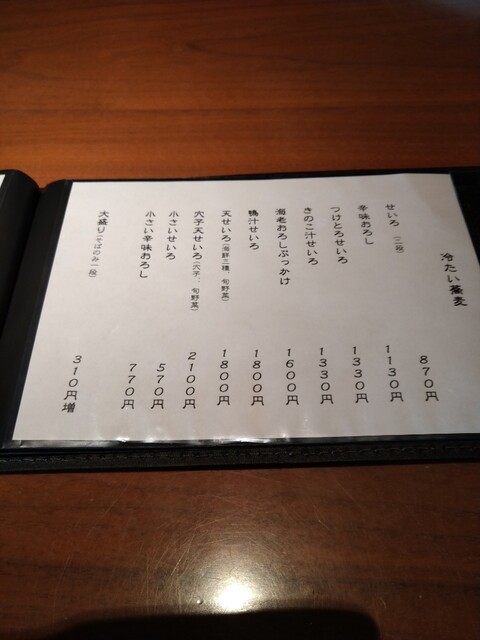 冷たい蕎麦
せいろ（二段） 870円
辛味おろし 1130円
つけとろせいろ 1330円
きのこ汁せいろ 1330円
海老おろしぶっかけ 1600円
鴨汁せいろ 1800円
天せいろ（海鮮三種、旬野菜） 1800円
穴子天せいろ（穴子、旬野菜） 2100円
小さいせいろ 570円
小さい辛味おろし 770円
大盛り（そばのみ一段） 310円増